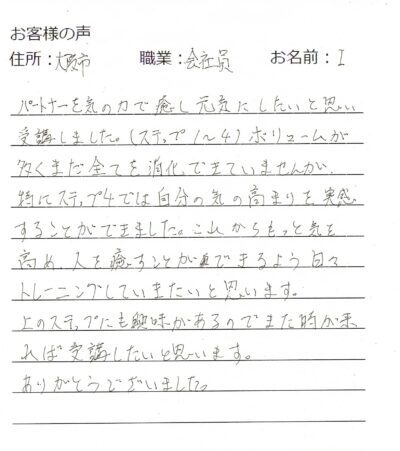 お客様の声
住所：大阪市 職業：会社員 お名前：I
パートナーを気の力で癒し元気にしたいと思い
受講しました。(ステップ1〜4) ボリュームが
多くまだ全てを消化できていませんが、
特にステップ4では自分の気の高まりを実感
することができました。これからもっと気を
高め、人を癒すことができるよう日々
トレーニングしていきたいと思います。
上のステップにも興味があるのでまた時が来
れば受講したいと思います。
ありがとうございました。